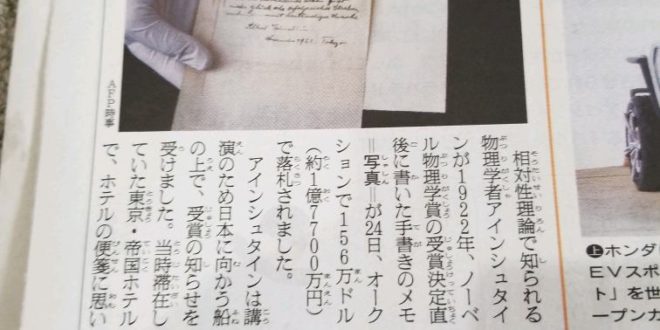 Albert Einstein.
November 1922. Tokyo
AFP時事
相対性理論で知られる
物理学者アインシュタイ
ンが1922年、ノーベ
ル物理学賞の受賞決定直
後に書いた手書きのメモ
＝写真＝が24日、オーク
ションで156万ドル
（約1億7700万円）
で落札されました。
アインシュタインは講
演のため日本に向かう船
の上で、受賞の知らせを
受けました。当時滞在し
ていた東京・帝国ホテル
で、ホテルの便箋に思い
㊤ホンダ
EVスポ
ト」を世
ープンカ